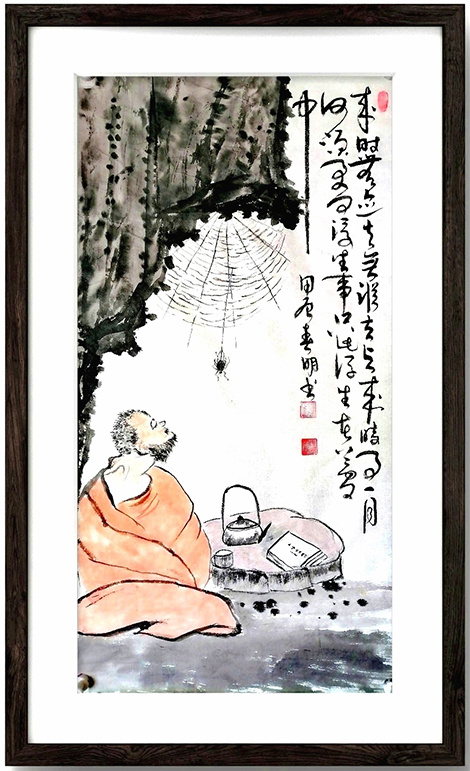 来时無迹去無踪去与来時事一同
何须更问浮生事只此浮生在梦
中
甲辰春明书